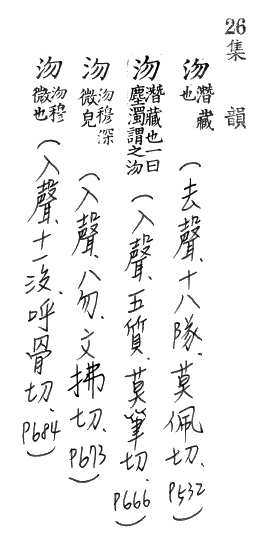 26集韻
沕潛藏也(去聲、十八隊、莫佩切、P532)
沕潛藏也一曰塵濁謂之沕(入聲、五質、莫筆切、P666)
沕沕穆深微皃(入聲、八勿、文拂切、P673)
沕沕穆微也(入聲、十一沒、呼骨切、P684)